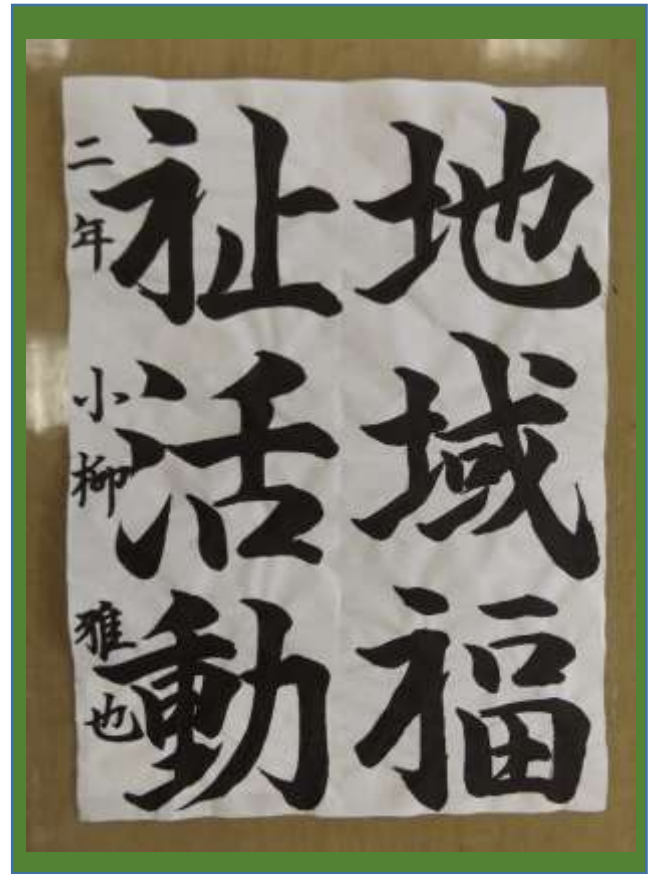 地域福
祉活動
二年 小柳 雅也